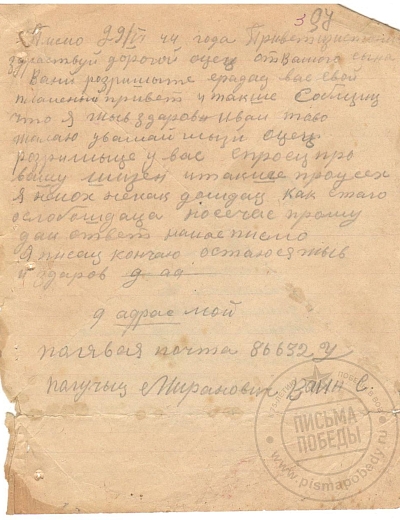 397
Писмо 29/VI 44 года Привет
здраствуй дорогой оцец от Вашого сына
Вани розришыте вас свой
пламеный привет и такше Собщиц
что я жыв здаров и Вам таво
жалаю уважаймый оцец
розришыце у вас спросиц про
вашу и такше про усех
Я ниох немац дождац как стаго
осдобождаца но сечас прошу
дац ответ на мае писмо
Я писац кончаю остаюся жыв
и здаров д ад
д адрас мой
палявая почта 86632 У
палучыц Миранович Ваин С.
ПИСЬМА ПОБЕДЫ
www.pismapobedy.ru